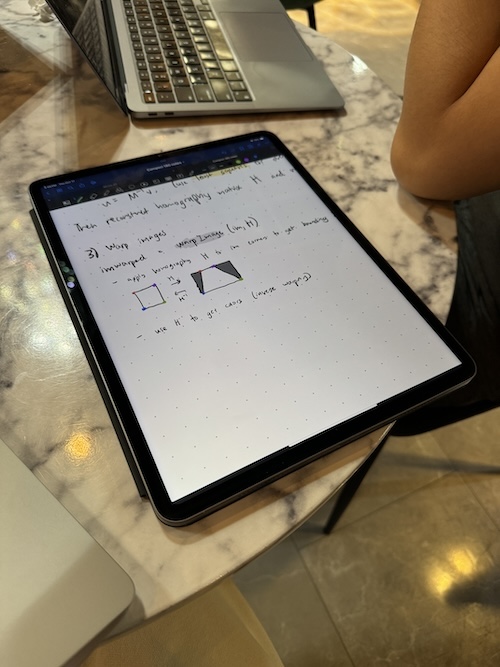 (use least squares)
Then reconstruct homography matrix H and
3) Warp images
imwarped = warpImage (im, H)
- apply homography H to im corners to get bounding
H
H⁻¹
- use H⁻¹ to get colors (inverse warping)